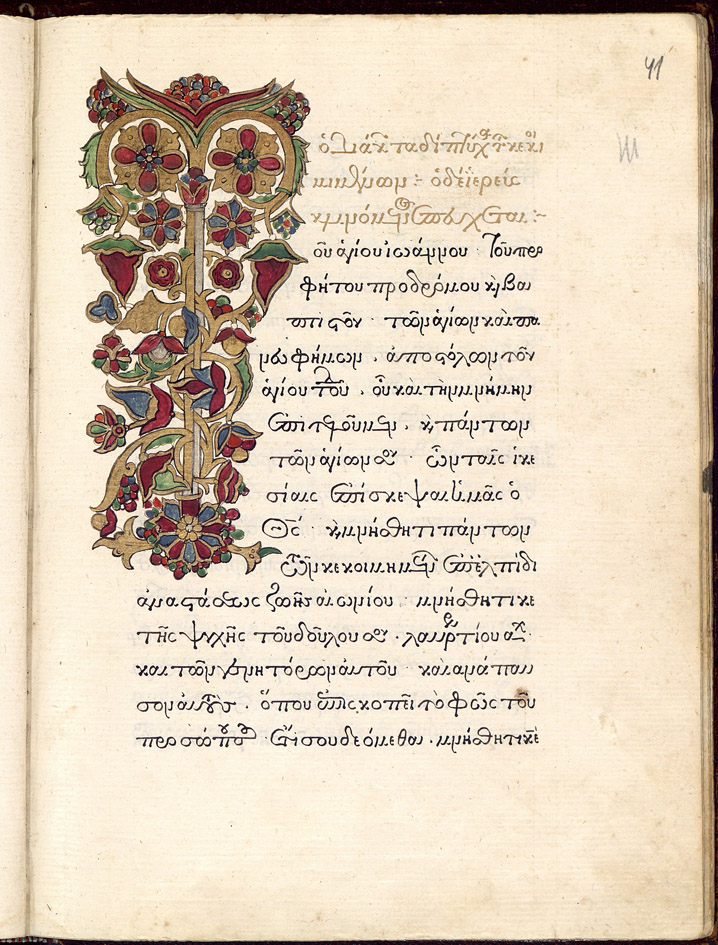 41
ὁ διάκ τὰ δίπτυχ τ κεκοι
μιμένων :· ὁ δὲ ἱερεὺς
κλινόμεν ἐπεύχεται :·
Τοῦ ἁγίου ἰωάννου · Τοῦ προ
φήτου προδρόμου κ βα
πτιστοῦ · τῶν ἁγίων καὶ πα
νευφήμων · ἀποστόλων τοῦ
ἁγίου τοῦ · οὗ καὶ τὴν μνήμην
ἐπιτελοῦμεν · κ πάντων
τῶν ἁγίων σου · ὧν ταῖς ἱκε
σίαις ἐπίσκεψαι ἡμᾶς ὁ
Θς · κ μνήσθητι πάντων
τῶν κεκοιμημεν ἐπ ἐλπίδι
ἀναστάσεως ζωῆς αἰωνίου · μνήσθητι κε
τῆς ψυχῆς τοῦ δούλου σου ·
καὶ τῶν γεννητόρων αὐτοῦ · καὶ ἀνάπαυ
σον αὐτοὺς · ὅπου ἐπισκοπεῖ τὸ φῶς τοῦ
προσώπου σου · Ἔτι σου δεόμεθα · μνήσθητι κε